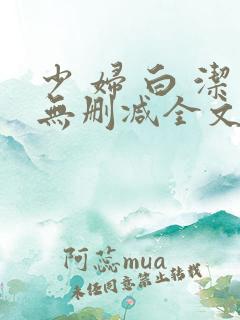 少婦白潔
無删减全文
阿蕊mua
未经同意禁止转载